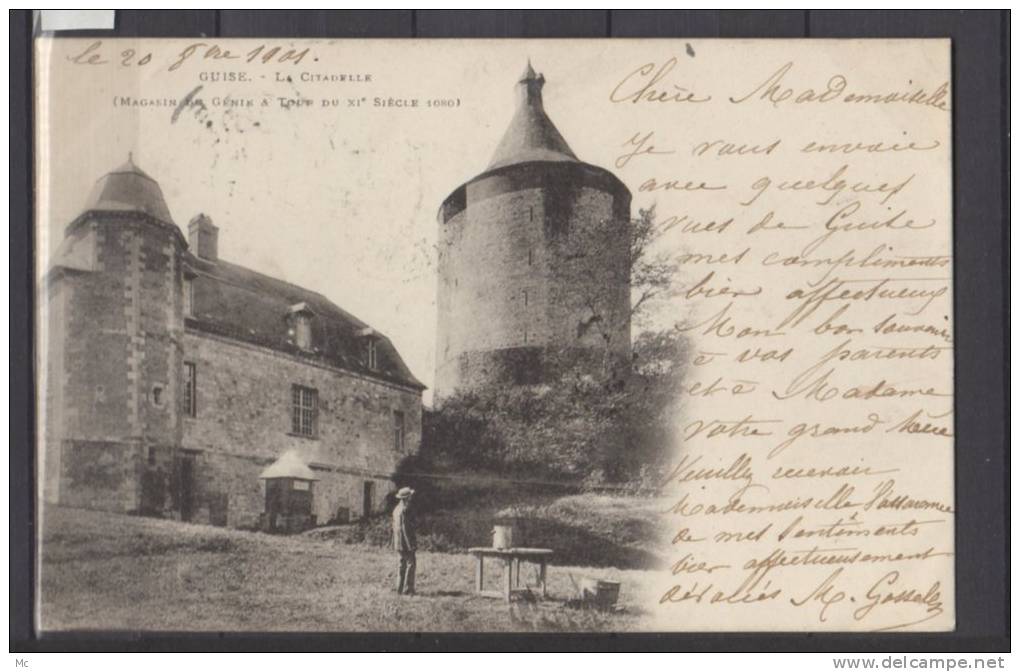 le 20 8bre 1901.
GUISE. - LA CITADELLE
(MAGASIN DU GÉNIE & TOUR DU XIe SIÈCLE 1080)
Chère Mademoiselle
Je vous envoie
avec quelques
vues de Guise
mes compliments
bien affectueux
Mon bon souvenir
à vos parents
et à Madame
votre grand Mère
Veuillez recevoir
Mademoiselle l'assurance
de mes sentiments
bien affectueusement
dévoués M.
www.delcampe.net
Mc